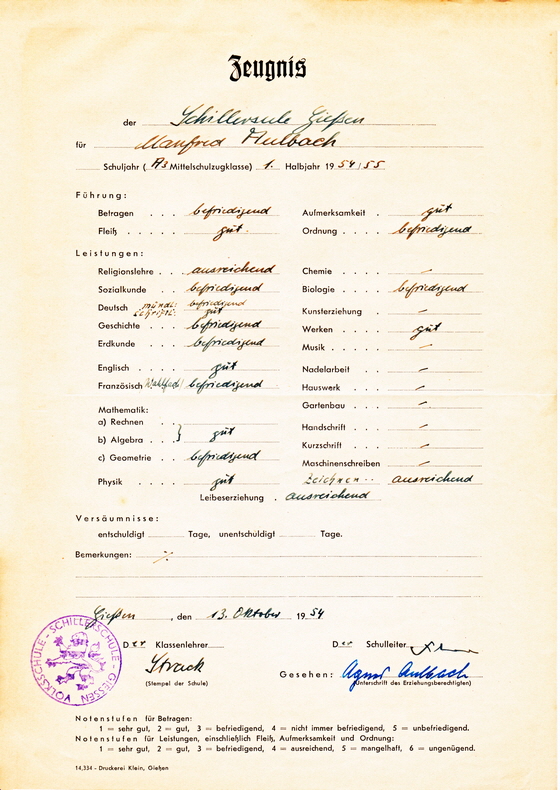 Zeugnis
der Schillersule Gießen
für Manfred Aulbach
Schuljahr ( A3 Mittelschulzugklasse) 1. Halbjahr 1954/55
Führung:
Betragen . . . befriedigend
Aufmerksamkeit . gut
Fleiß . . . . . . gut.
Ordnung . . . . befriedigend
Leistungen:
Religionslehre . . . ausreichend
Chemie . . . . –
Sozialkunde . . . befriedigend
Biologie . . . . befriedigend
Deutsch mündl: befriedigend
schriftl: gut
Kunsterziehung . –
Geschichte . . . befriedigend
Werken . . . . gut
Erdkunde . . . befriedigend
Musik . . . . –
Englisch . . . gut
Nadelarbeit . . –
Französisch (Wahlfach) befriedigend
Hauswerk . . . –
Gartenbau . . . –
Mathematik:
a) Rechnen . .
b) Algebra . . . } gut
Handschrift . . –
Kurzschrift . . . –
c) Geometrie . . . befriedigend
Maschinenschreiben –
Physik . . . gut
Zeichnen . . ausreichend
Leibeserziehung . ausreichend
Versäumnisse:
entschuldigt Tage, unentschuldigt Tage.
Bemerkungen: ./.
Gießen, den 13. Oktober 1954
Der Klassenlehrer
Der Schulleiter
Strack
(Stempel der Schule)
Gesehen: Agnes Aulbach
(Unterschrift des Erziehungsberechtigten)
VOLKSSCHULE - SCHILLERSCHULE GIESSEN
Notenstufen für Betragen:
1 = sehr gut, 2 = gut, 3 = befriedigend, 4 = nicht immer befriedigend, 5 = unbefriedigend.
Notenstufen für Leistungen, einschließlich Fleiß, Aufmerksamkeit und Ordnung:
1 = sehr gut, 2 = gut, 3 = befriedigend, 4 = ausreichend, 5 = mangelhaft, 6 = ungenügend.
14,334 - Druckerei Klein, Gießen